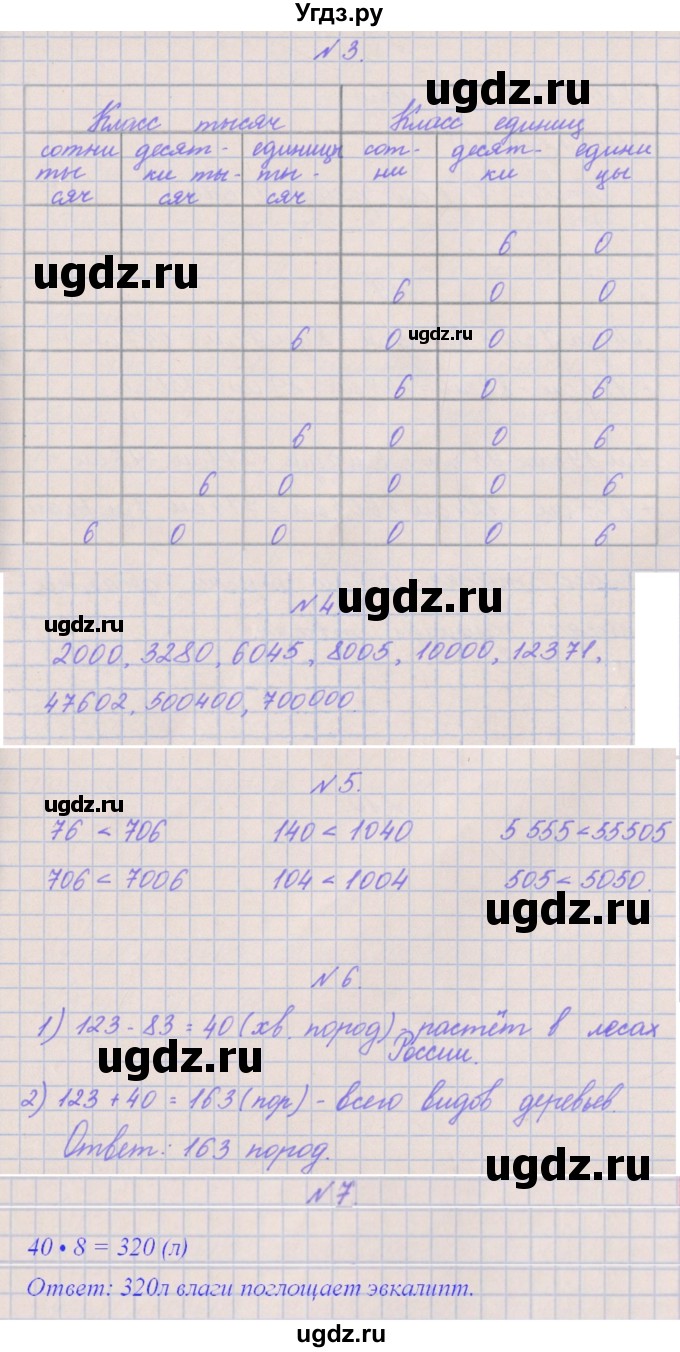 Угдз.ру
№3.
ugdz.ru
Класс тысяч Класс единиц
сотни десят- единицы сот- десят- едини
ты ки ты- ты- ни ки цы
сяч сяч сяч
6 0
ugdz.ru
6 0 0
6 0 0 0
ugdz.ru
6 0 6
6 0 0 6
6 0 0 0 6
6 0 0 0 0 6
№4.
ugdz.ru
ugdz.ru
2000, 3280, 6045, 8005, 10000, 12371,
47602, 500400, 700000.
№5.
ugdz.ru
76 < 706 140 < 1040 5 555 < 55505
706 < 7006 104 < 1004 505 < 5050.
ugdz.ru
№6.
1) 123 - 83 = 40 (хв. пород) - растёт в лесах
России.
ugdz.ru
2) 123 + 40 = 163 (пор) - всего видов деревьев.
Ответ: 163 пород.
ugdz.ru
№7.
40 • 8 = 320 (л)
Ответ: 320л влаги поглощает эвкалипт.
ugdz.ru